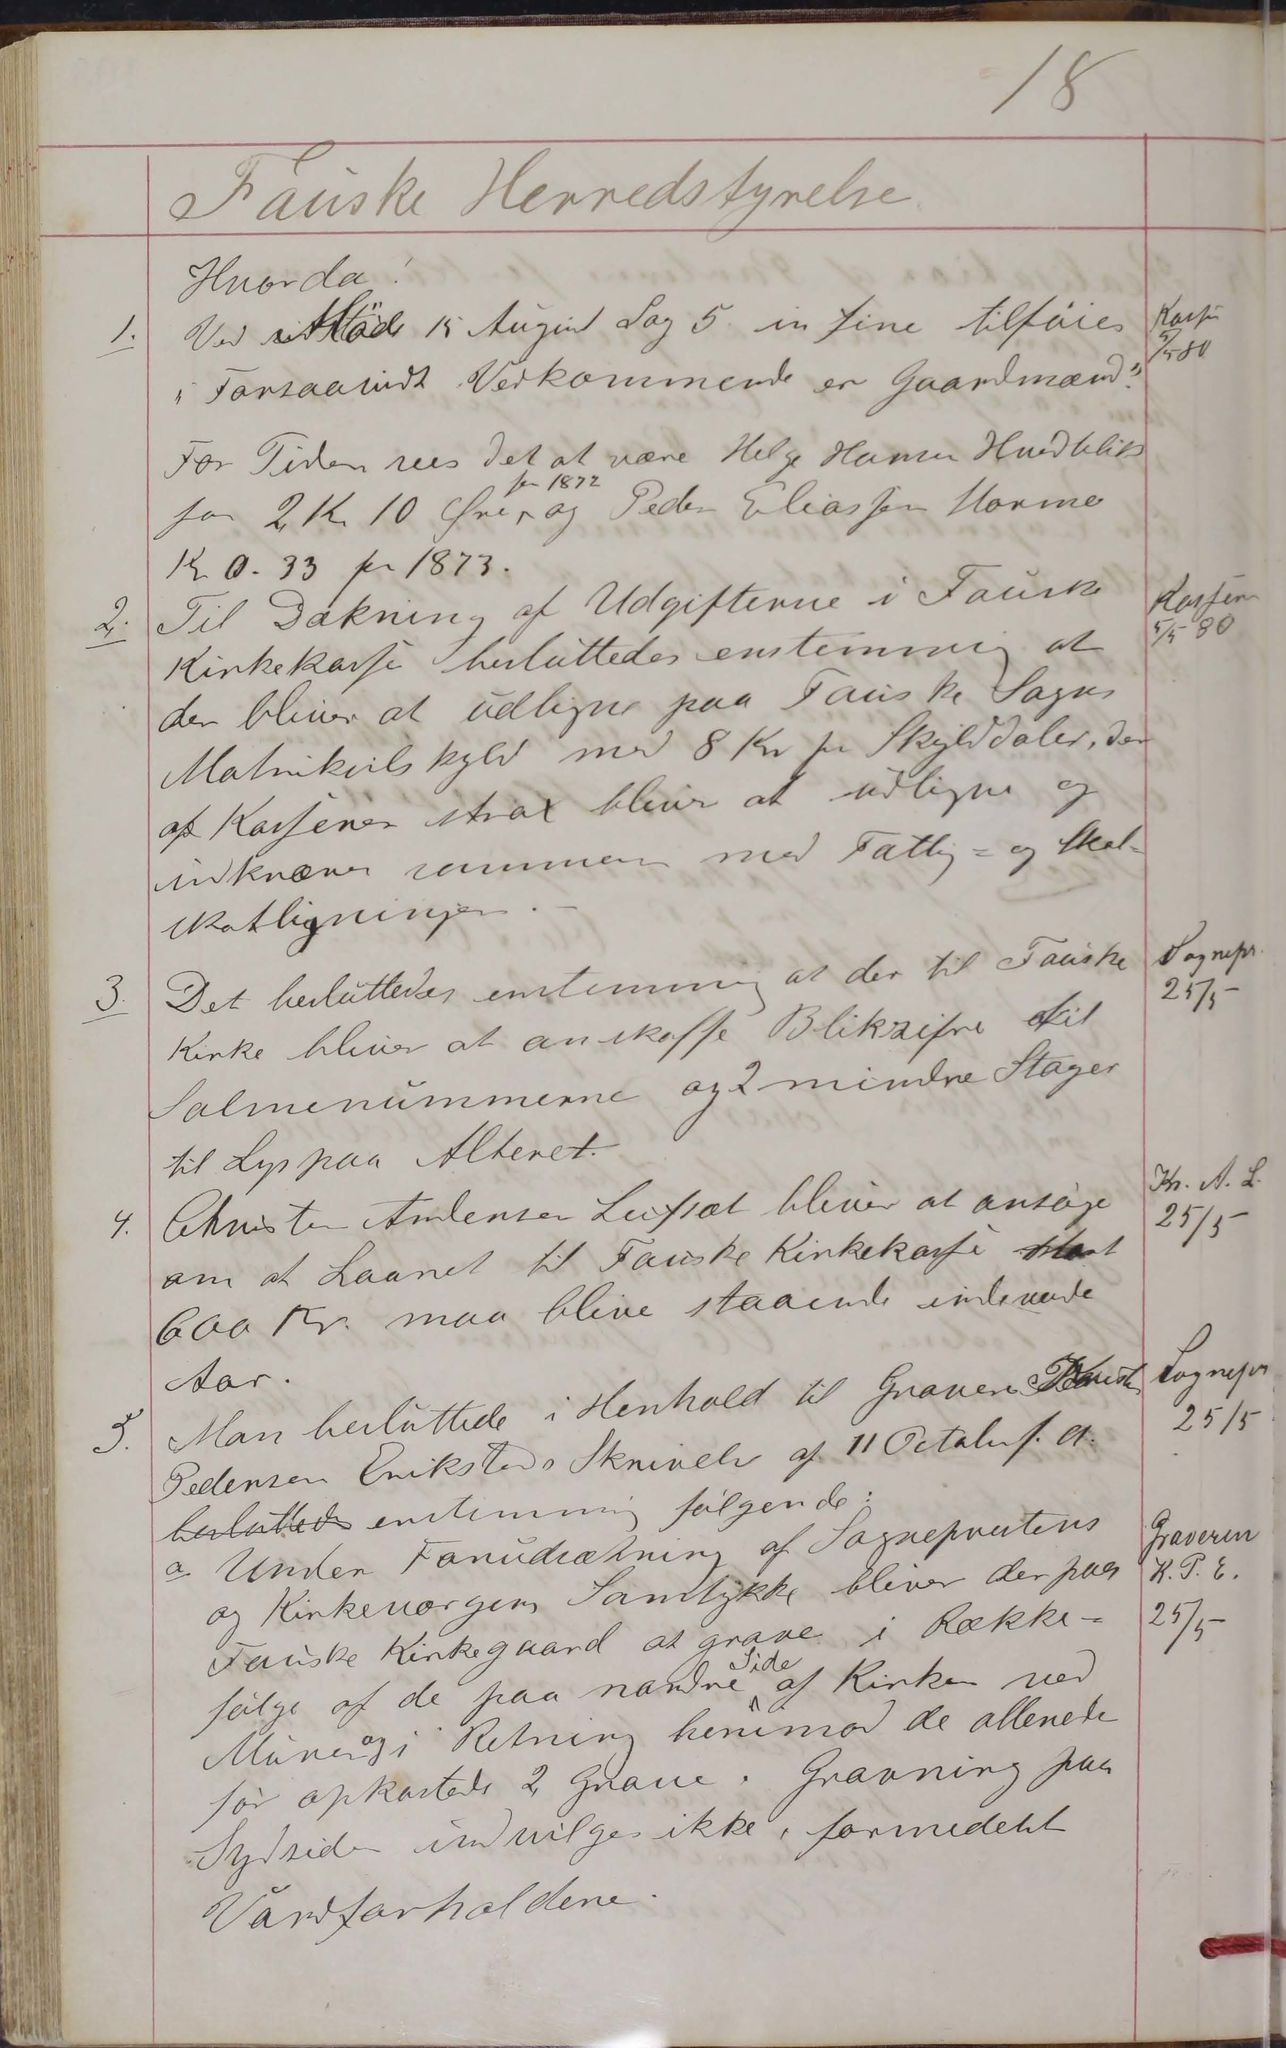 18
Fauske Herredstyrelse
Hvorda!
1. Ved Møde 15 August Sag 5 in fine tilføies
"Forsaavidt Vedkommende er Gaardmænd".
For Tiden sees det at være Helge Hansen Hvedbliks
for 2 Kr 10 Øre for 1872, og Peder Eliassen Mormo
Kr 0.33 for 1873.
2. Til Dækning af Udgifterne i Fauske
Kirkekasse besluttedes enstemmig at
der bliver at udligne paa Fauske Sogns
Matrikulskyld med 8 Kr pr Skylddaler, der
af Kasserer strax bliver at udligne og
indkræves sammen med Fattig- og Skol-
skatligningen.
3. Det besluttedes enstemmig at der til Fauske
Kirke bliver at anskaffe Blikzifre til
Salmenummerne og 2 mindre Stager
til Lys paa Alteret.
4. Christen Andersen Leifset bliver at ansøge
om at Laanet til Fauske Kirkekasse stort
600 Kr. maa blive staaende indeværende
Aar.
5. Man besluttede i Henhold til Graver
Pedersen Erikstads Skrivelse af 11 October f. A.
besluttede enstemmig følgende:
a. Under Forudsætning af Sognepræstens
og Kirkeværgens Samtykke bliver der paa
Fauske Kirkegaard at grave i Række-
følge af de paa nordre Side af Kirken ved
Muren og i Retning henimod de allerede
før opkastede 2 Grave. Gravning paa
Sydsiden indvilges ikke, formedelst
Vandforholdene.
Kasser
5/5 80
Kasserer
5/5 80
Sognepr.
25/5
Kr. A. L.
25/5
Sognepr
25/5
Graveren
K. P. E.
25/5